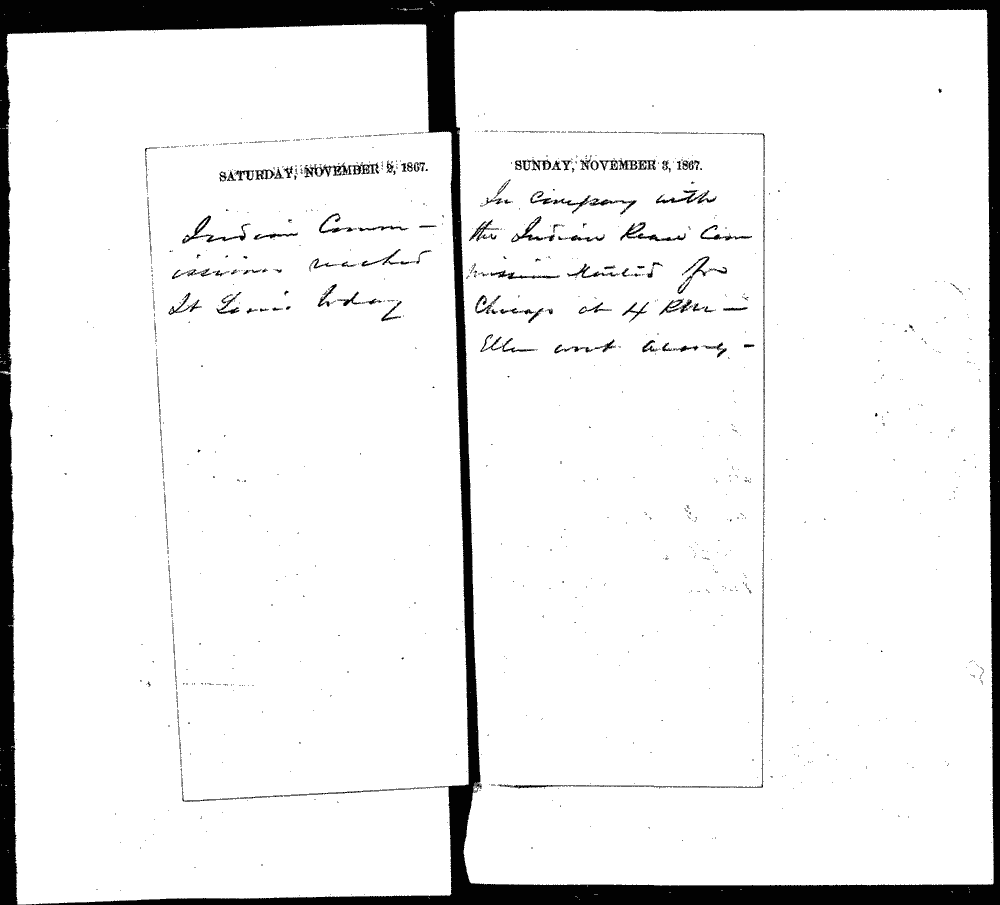 SATURDAY, NOVEMBER 2, 1867.
Indian Comm -
issioners reached
St Louis today
SUNDAY, NOVEMBER 3, 1867.
In company with
the Indian Peace Com
mission started for
Chicago at 4 P.M. -
Ellen went along -